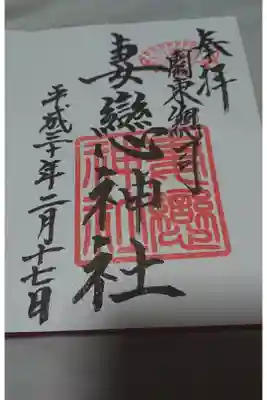 奉拝
關東總司
妻戀神社
平成二十年二月十七日
妻戀神社